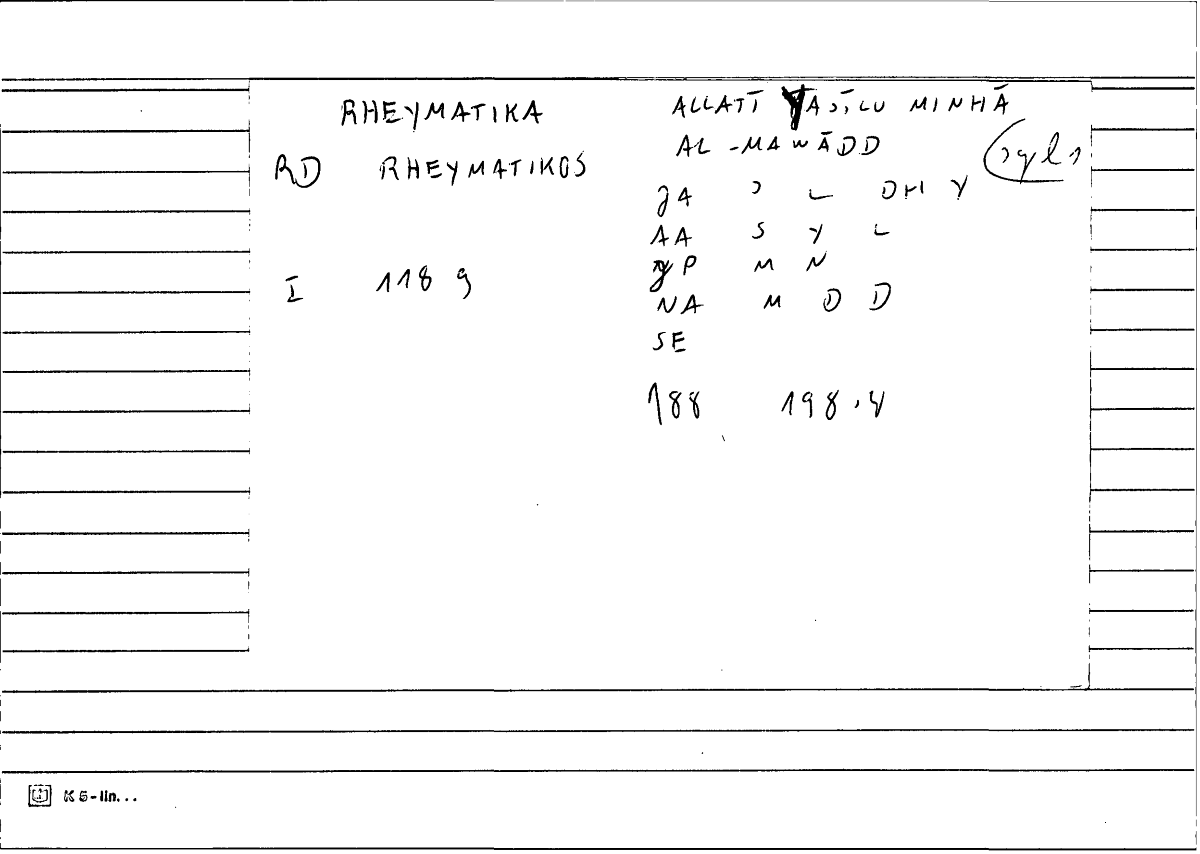 RHEYMATIKA
RD RHEYMATIKOS
I 118 9
ALLATĪ YASĪLU MINHĀ
AL-MAWĀDD
JA L DHY
AA S Y L
P M N
NA M D D
SE
188 198,8
K5-lin...